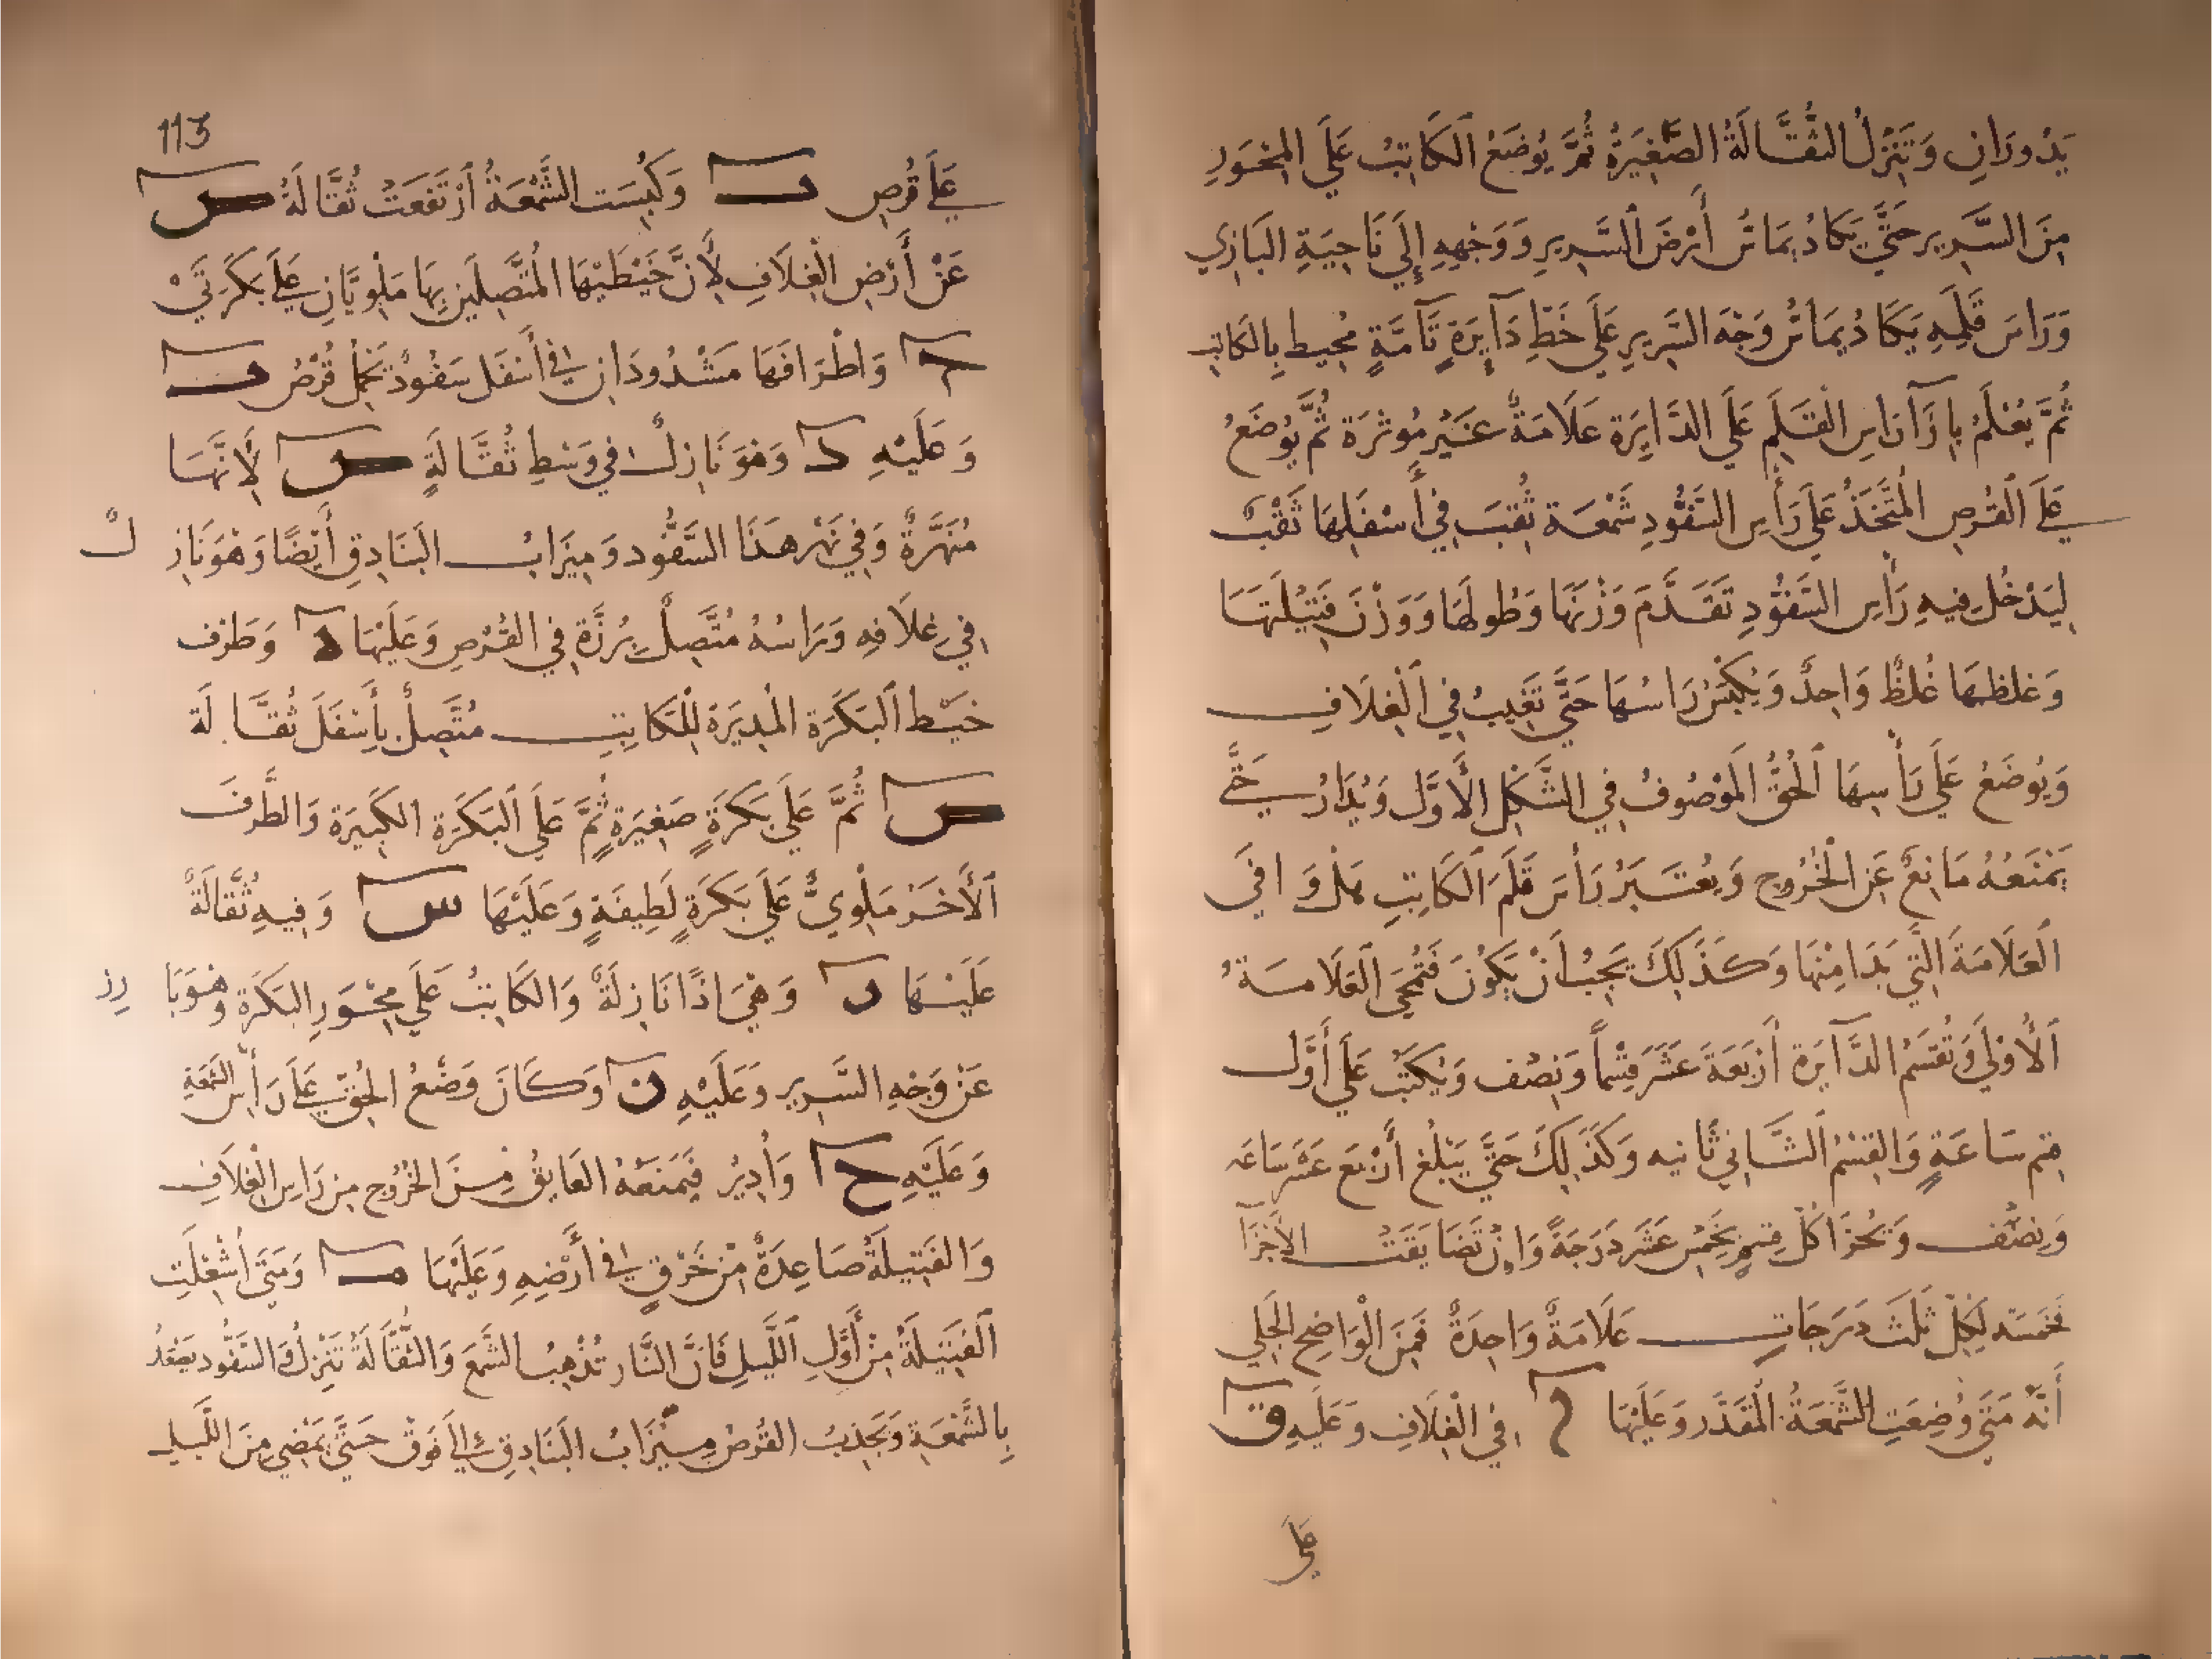 يَدُورَانِ وَتَنْزِلُ الثُّقَّالَةُ الصَّغِيرَةُ ثُمَّ يُوضَعُ الكَاتِبُ عَلَى المِحْوَرِ
مِنَ السَّرِيرِ حَتَّى يَكَادُ يمَاسُّ أَرْضَ السَّرِيرِ وَوَجْهِهِ إِلَى نَاحِيَةِ البَازِي
وَرَاسَ قَلَمِهِ يَكَادُ يمَاسُّ وَجْهَ السَّرِيرِ عَلَى خَطِّ دَآيِرَةٍ تَآمَّةٍ مُحِيط بِالكَاتِبِ
ثُمَّ يُعْلَمُ بِازَآ رَاسِ القَلَمِ عَلَى الدَّايِرَة عَلَامَةٌ غَيْرِ مُوثرَة ثُمَّ يُوضَعُ
عَلَى القُرْصِ المُتَّخَذُ عَلَى رَأْسِ السَّفُّودِ شَمْعَة ثُقِبَ فِي أَسْفَلِهَا ثَقْبٌ
لِيَدْخُلَ فِيهِ رَأْسِ السَّفُّودِ تَقَدَّمَ وَزْنهَا وَطُولهَا وَوَزْنَ فَتِيْلَتهَا
وَغلظهَا غُلظٌ وَاحِدٌ وَيُكْبَسُ رَاسُهَا حَتَّى تَغِيبُ فِي الْغِلَافِ
وَيُوضَعُ عَلَى رَأْسِهَا الحُقُّ المَوْصُوفُ فِي الشَّكْلِ الأَوَّل وَيُدَارُ حَتَّى
يَمْنَعُهُ مَانِعٌ عَنِ الخُرُوجِ وَيعْتَبَرُ رَأسَ قَلَمَ الكَاتِبِ هَلْ وَافَى
العَلَامَةَ الَّتِي بَدَا مِنْهَا وَكَذَلِكَ يَجِبُ أَنْ يَكُونَ فَتُمْحَى العَلَامَةُ
الأُوْلَى وَتُقْسَمُ الدَّآيرَة أَرْبَعَةَ عَشَرَ قِسْماً وَنِصْف وَيُكْتَبُ عَلَى أَوَّل
قِسْم سَاعَةٍ وَالقِسْمُ الثَّانِي ثَانِيه وَكَذَلِكَ حَتَّى يَبْلُغ أَرْبَعَ عَشَر سَاعَه
وَنِصْف وَيُجَزَّا كُلّ قِسْمٍ بِخَمْسِ عَشَر دَرَجَةً وَاِنْ تَضَايَقَتْ الأَجْزَآ
فخمسَه لِكُلِّ ثَلَثَ دَرَجَاتٍ عَلَامَةٌ وَاحِدَةٌ فَمِنَ الْوَاضِحِ الجَلِي
أَنَّهُ مَتَى وُضِعَتِ الشَّمْعَةُ المُقَدَّر وَعَلَيْهَا م فِي الْغِلَافِ وَعَلَيهِ ق
عَلَى
113
عَلَى قُرصِ ب وَكُبِسَت الشَّمْعَةُ ارْتَفَعَتْ ثُقَّالَةُ ص
عَنْ أَرْضِ الْغِلَافِ لِأَنَّ خَيْطَيْهَا المُتَّصِلَيْنِ بِهَا مَلْوِيَّانِ عَلَى بَكَرَتَيْ
م وَاطْرَافَهَا مَشْدُودَانِ فِي أَسْفَل سَفُّودٌ يَحْمِلُ قُرْصُ ب
وَعَلَيْهِ د وَهْوَ نَازِلٌ فِي وَسْطِ ثُقَّالَةٍ ص لِأَنَّهَا
مُنَهَّرَةٌ وَفِي نَهْر هَذَا السَّفُّود وَمِيزَابُ البَنَادِقِ أَيْضًا وَهْوَ نَازِلٌ
فِي غِلَافِهِ وَرَاسُهُ مُتَّصِلٌ بِرُزَّة فِي القُرْصِ وَعَلَيْهَا ه وَطَرْف
خَيْط البَكَرَة المُدِيرَة لِلْكَاتِبِ مُتَّصِلٌ بِأَسْفَلَ ثُقَّالَة
ص ثُمَّ عَلَى بَكَرَةٍ صَغِيرَةٍ ثُمَّ عَلَى البَكَرَة الكَبِيرَة وَالطَّرفَ
الأَخَر مَلْوِيٌّ عَلَى بَكَرَةٍ لَطِيفَةٍ وَعَلَيْهَا س وَفِيهِ ثُقَّالَةٌ
عَلَيْهَا ر وَهْيَ اذًا نَازِلَةٌ وَالكَاتِبُ عَلَى مِحْوَرِ البَكَرَة وَهْوَ بَارِز
عَنْ وَجْهِ السَّرِيرِ وَعَلَيْهِ ن وَكَانَ وَضْعُ الحُقّ عَلَى رَأْسِ الشَّمْعَةِ
وَعَلَيْهِ ح وَأُدِيرُ فَيَمْنَعْهُ العَايِقُ مِنَ الخُرُوجِ مِن رَاسِ الْغِلَافِ
وَالفَتِيلَةُ صَاعِدَةٌ مِنْ خَرْقٍ فِي أَرْضِهِ وَعَلَيْهَا وَمَتَى اشْعِلَتِ
الفَتِيلَةُ مِنْ أَوَّلِ اللَّيلِ فَانَّ النَّار تُذْهِبُ الشَّمَعَ وَالثُّقَّالَةُ تَنْزِلُ وَالسَّفُّود يَصْعَدُ
بِالشَّمْعَةِ وَيَجْذِبُ القُرْصُ مِيزَابُ البَنَادِقِ إِلَى فَوْقُ حَتَّى يَمْضِي مِنَ اللَّيلِ